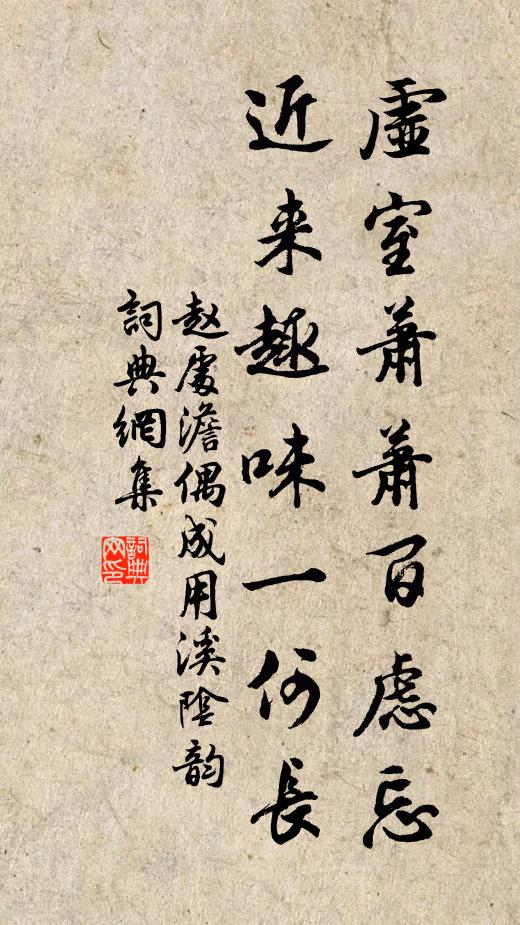 虛室蕭蕭百慮忘
近来趣味一何長
赵處澹偶成用溪陰韵
詞典網集
詞典网印